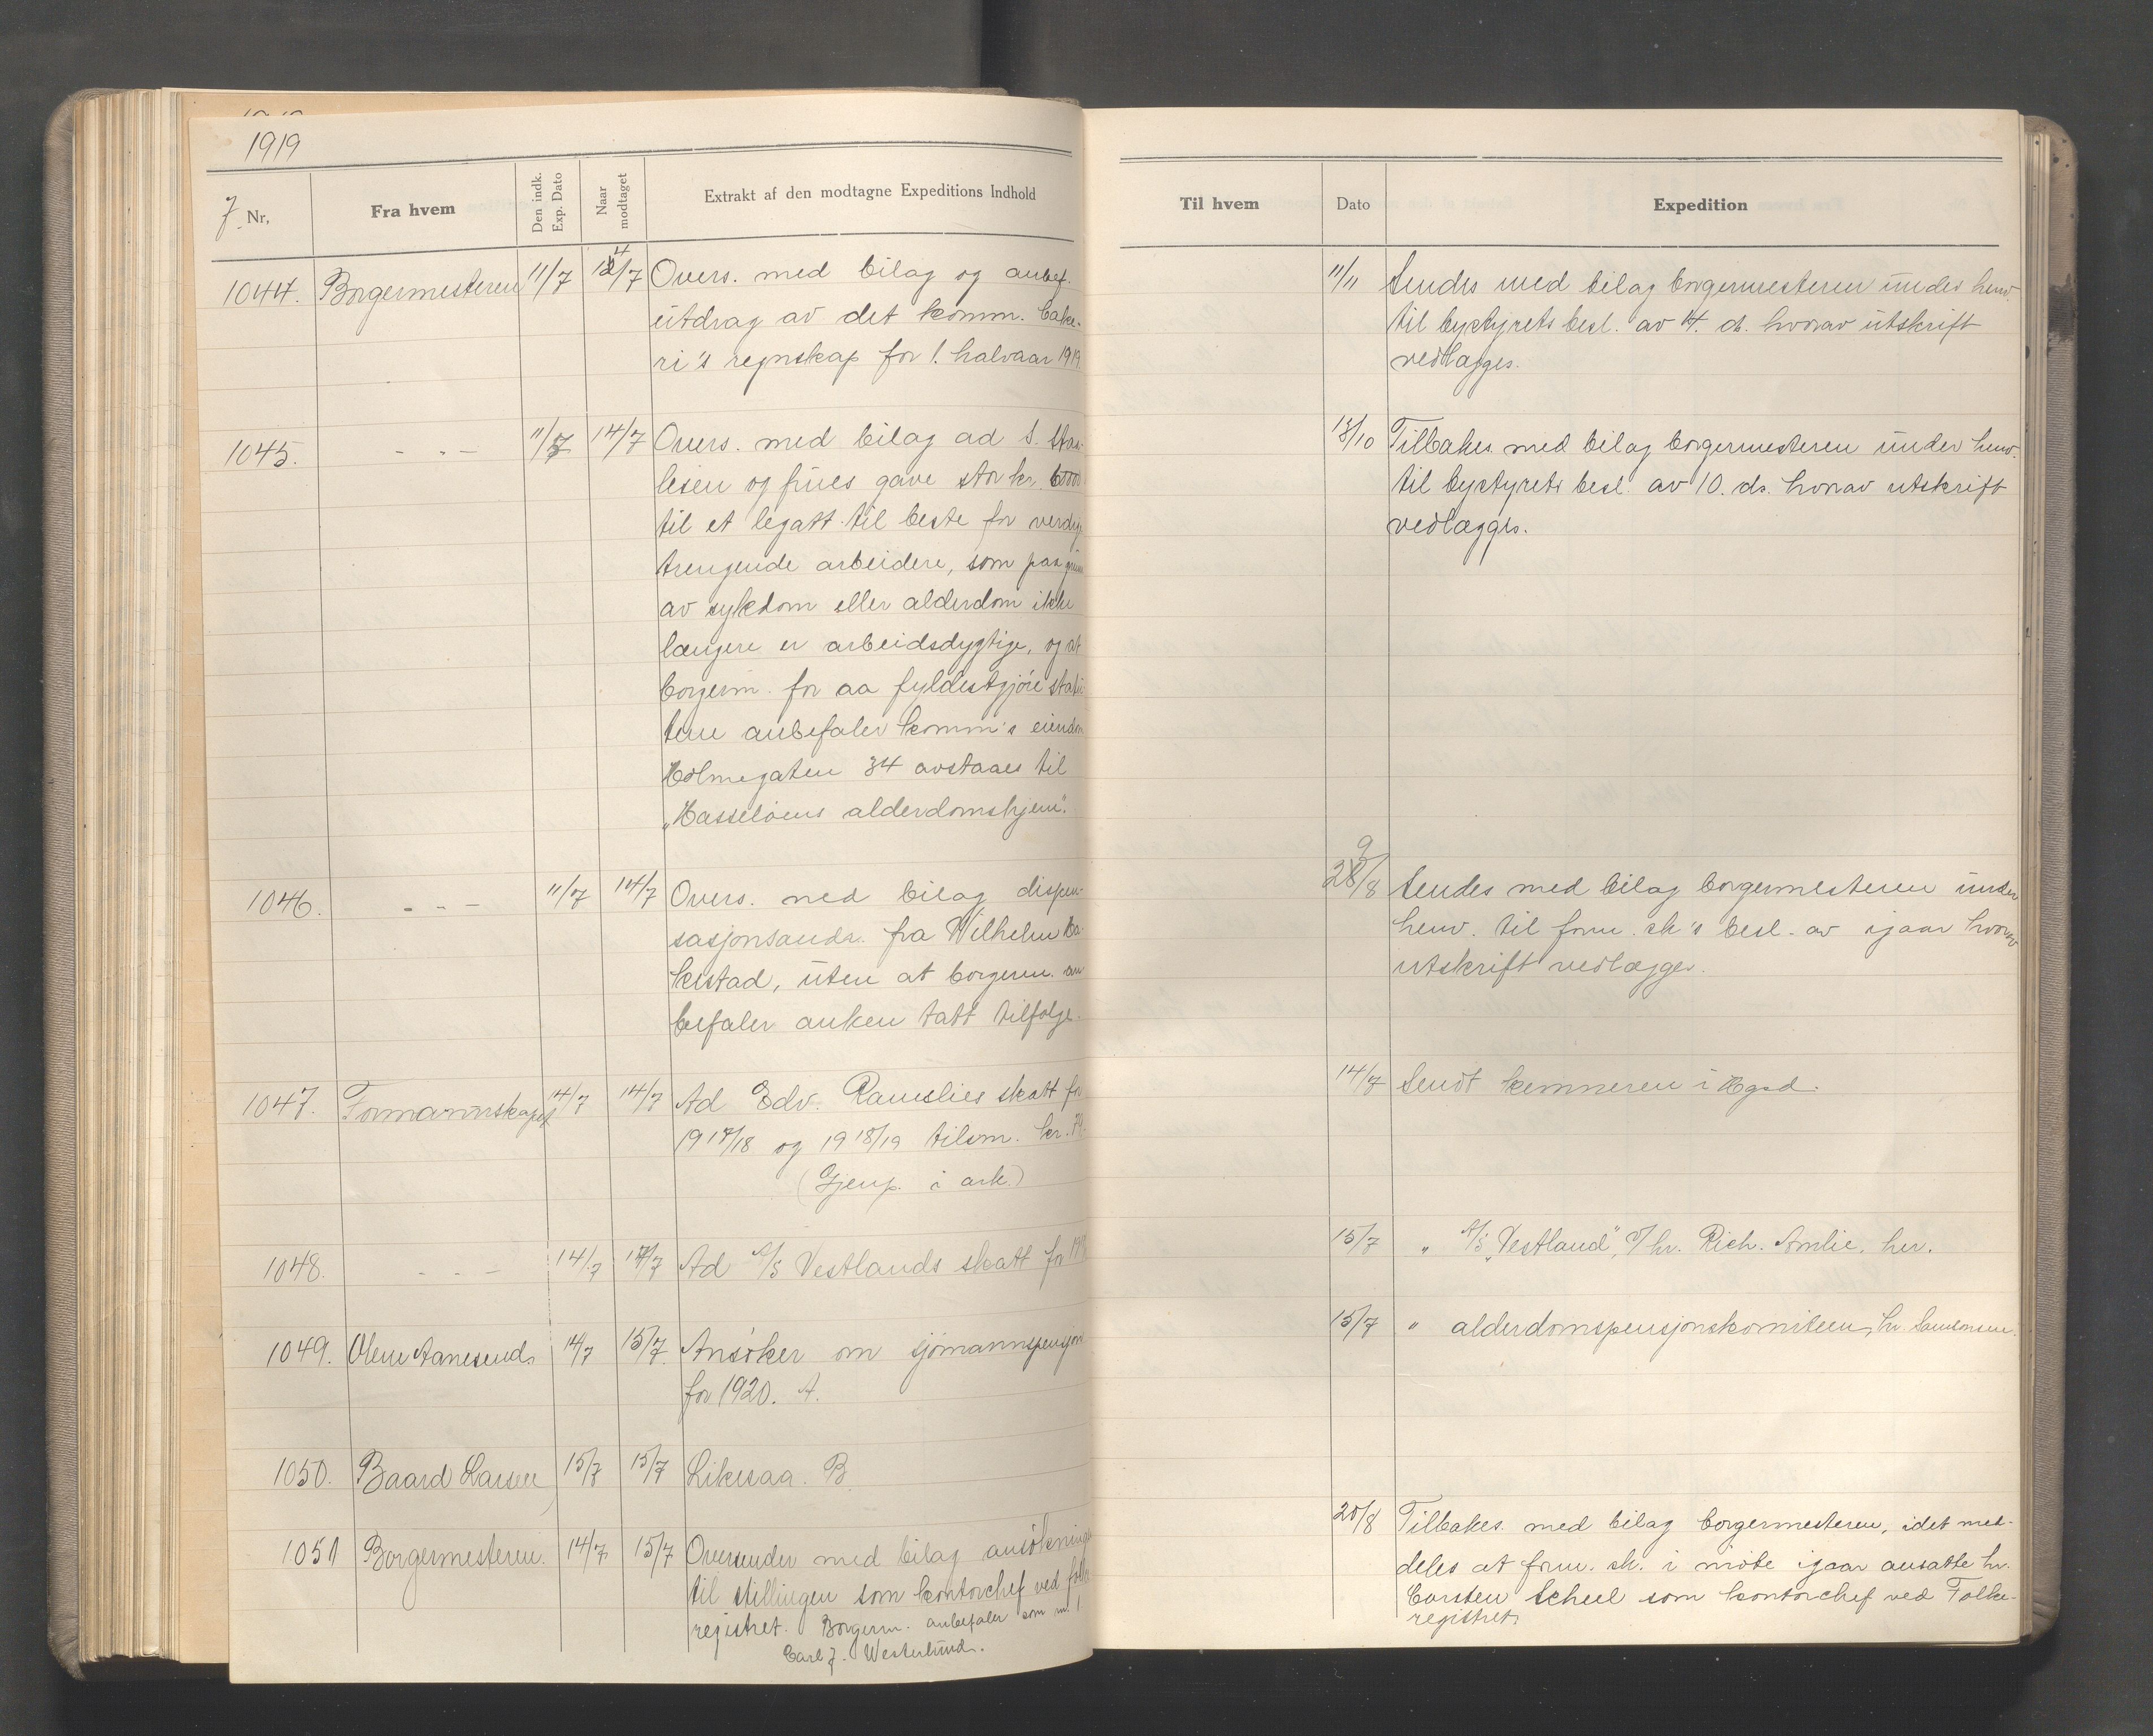 1919
J. Nr,
Fra hvem
Den indk. Exp. Dato
Naar modtaget
Extrakt af den modtagne Expeditions Indhold
1044. Borgermesteren 11/7 14/7 Overs. med bilag og anbef.
utdrag av det komm. bake-
ri's regnskap for 1. halvaar 1919.
1045. - " - 11/7 14/7 Overs. med bilag ad S.
og frues gave stor kr.
til et legatt til beste for verdige
trengende arbeidere, som paa grunn
av sykdom eller alderdom ikke
længere er arbeidsdygtige, og at
borgerm. for aa fyldestgjøre statu
tene anbefaler komm's eiendom
Holmegaten 34 avstaaes til
„Hasseløens alderdomshjem".
1046. - " - 11/7 14/7 Overs. med bilag dispen-
sasjonsandr. fra Wilhelm Ha-
kestad, uten at borgerm. an
befaler anken tatt tilfølge.
1047. Formannskapet 14/7 14/7 Ad Edv. Ramslies skatt for
1917/18 og 1918/19 tilsm. kr.
(Gjenp. i ark.)
1048. - " - 14/7 14/7 Ad A/S Vestlands skatt for
1049. Olene Aanesends 14/7 15/7 Ansøker om sjømannspensjon
for 1920. A.
1050. Baard Larsen 15/7 15/7 Likesaa. B.
1051 Borgermesteren. 14/7 15/7 Oversender med bilag ansøkninger
til stillingen som kontorchef ved folke
registret. Borgerm. anbefaler som nr. 1
Carl J. Westerlund.
Til hvem
Dato
Expedition
11/11 Sendes med bilag borgermesteren under henv.
til bystyrets besl. av 4. ds. hvorav utskrift
vedlægges.
13/10 Tilbakes. med bilag borgermesteren under henv.
til bystyrets besl. av 10. ds. hvorav utskrift
vedlægges.
29/8 Sendes med bilag borgermesteren under
henv. til form. sk's besl. av igaar hvorav
utskrift vedlægges.
14/7 Sendt kemneren i Hgsd.
15/7 " A/S „Vestland", v/ hr. Rich. Amlie, her.
15/7 " alderdomspensjonskomiteen, hr. Samsonsen.
20/8 Tilbakes. med bilag borgermesteren, idet med-
deles at form. sk. i møte igaar ansatte hr.
Carsten Scheel som kontorchef ved Folke-
registret.